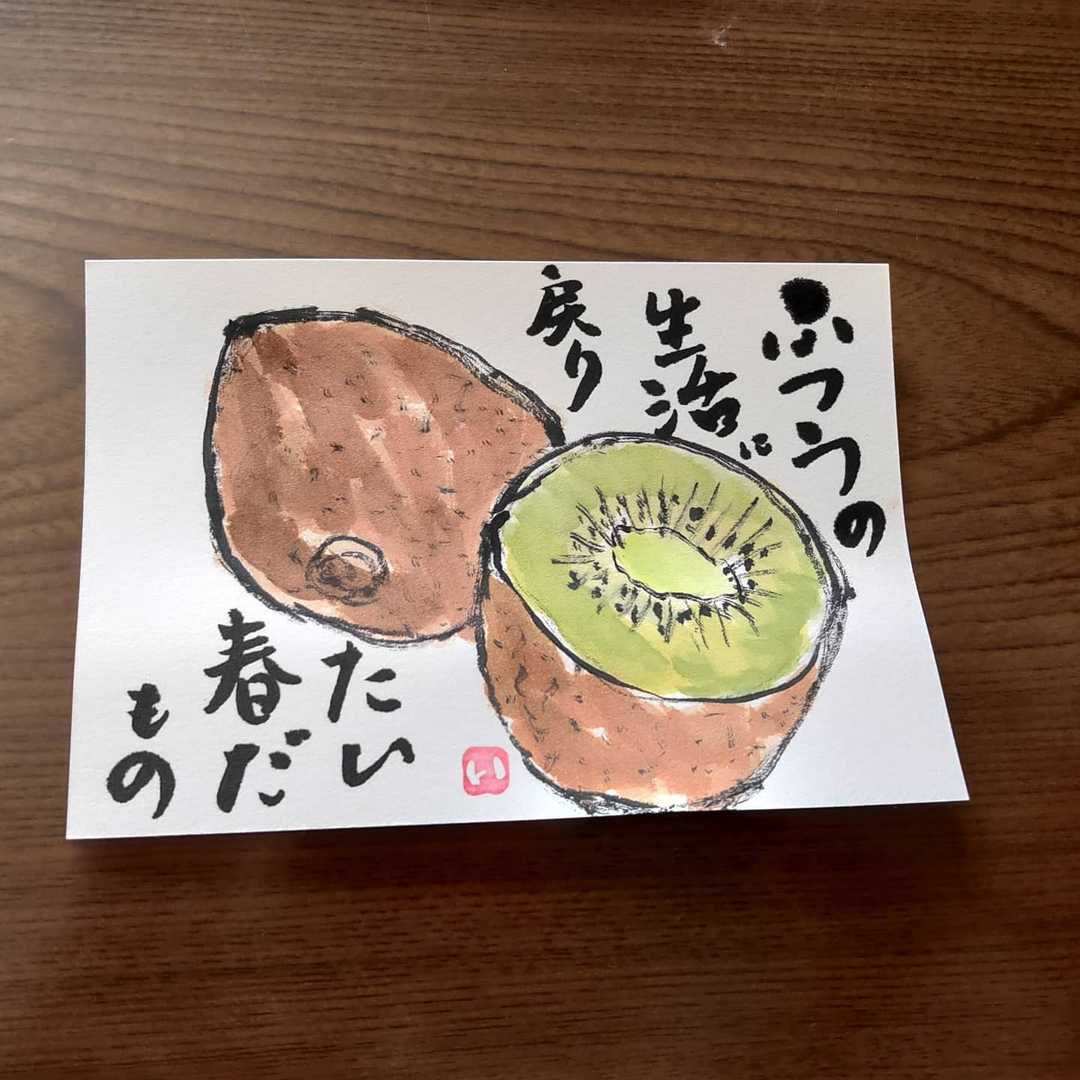 ふつうの
生活に
戻り
たい
春だ
もの
い